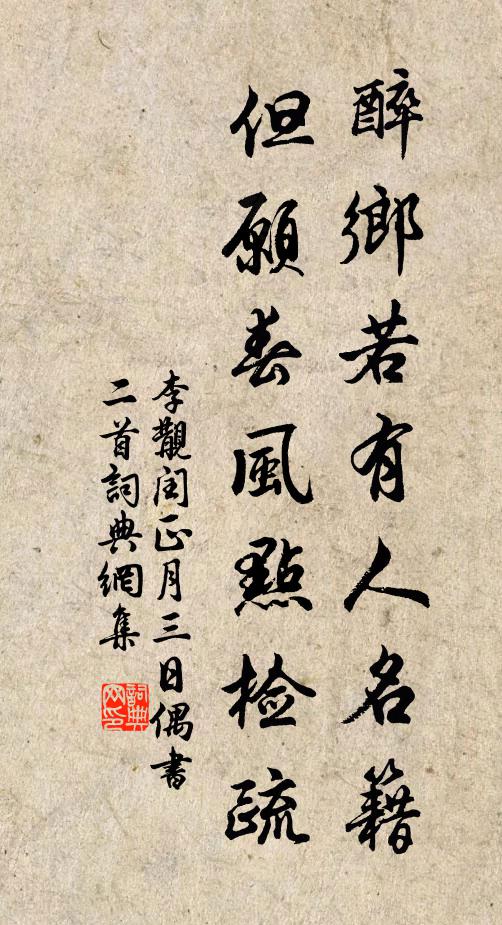 醉鄉若有人名籍
但願春風點檢疏
李覯閏正月三日偶書
二首詞典網集
詞典网印